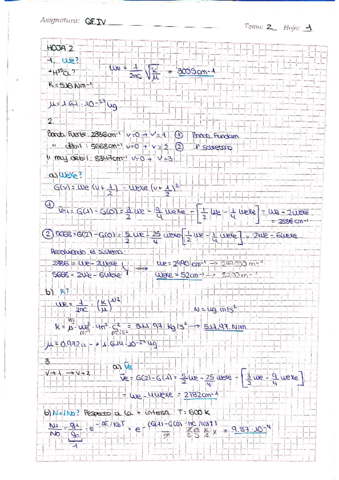 Asignatura: QFIV Tema: 2 Hoja: 1
HOJA 2
1. we?
we = 1/2πc √(K/μ) = 3005cm⁻¹
K = 516 Nm⁻¹
2.
Banda fuerte: 2886cm⁻¹ v=0 → v=1 ① Banda Fundam
" débil: 5668cm⁻¹ v=0 → v=2 ② 1º Sobretono
" muy débil: 8347cm⁻¹ v=0 → v=3
a) weXe?
G(v) = we (v+1/2) - wexe (v+1/2)²
① = G(1) - G(0) = 3/2 we - 9/4 wexe - [1/2 we - 1/4 wexe] = we - 2wexe = 2886cm⁻¹
② 5668 = G(2) - G(0) = 5/2 we - 25/4 wexe - [1/2 we - 1/4 wexe] = 2we - 6wexe
Resolviendo el sistema:
2886 = we - 2wexe
5668 = 2we - 6wexe
we = 2990cm⁻¹
wexe = 52cm⁻¹
b) K?
we = 1/2πc (K/μ)^1/2
N = kg m/s²
K = μ · we² · 4π² · c² = 511.97 kg/s² → 511.97 N/m
3
v=1 → v=2
a) ṽe
ṽe = G(2) - G(1) = 5/2 we - 25/4 wexe - [3/2 we - 9/4 wexe]
= we - 4wexe = 2782cm⁻¹
b) N1/N0? Respecto a la + intensa T = 600K
N1/N0 = g1/g0 · e^-ΔE/KBT = e^-(G(1)-G(0) · hc/KBT) = 9.87·10⁻⁴
1